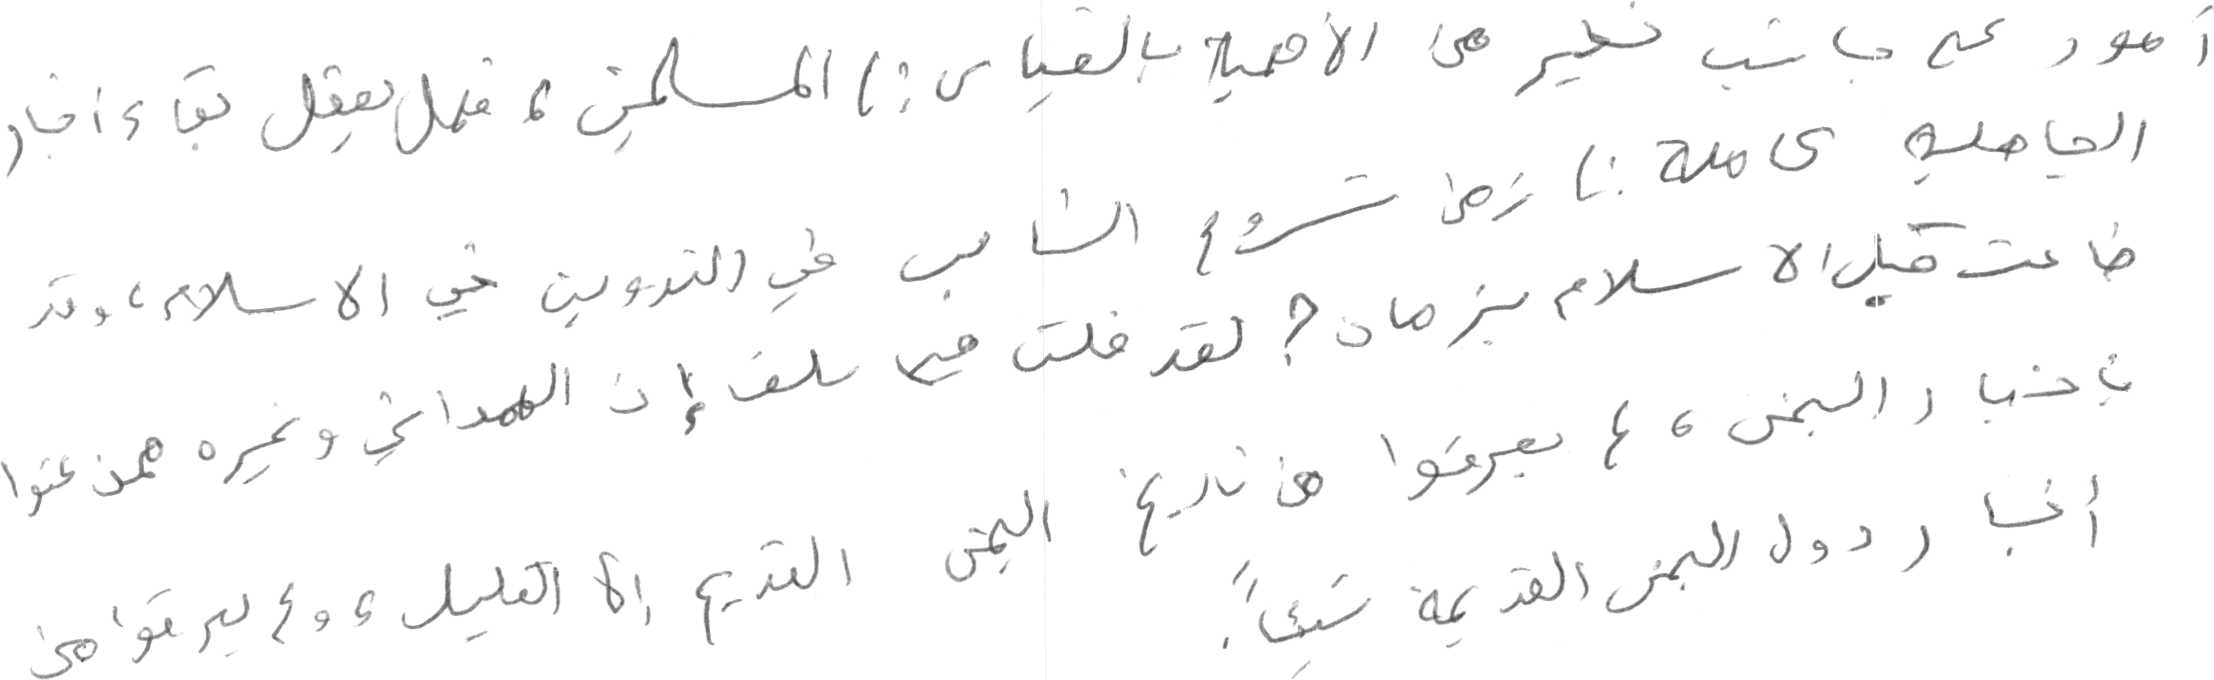 أمور على جانب خطير من الأهمية بالقياس إلى المسلمين، فهل يعقل بقاء أخبار
الجاهلية كاملة إلى زمن شروع الناس في التدوين في الاسلام، وقد
ضاعت قبيل الاسلام بزمان؟ لقد قلت فيما سلف إن الهمداني وغيره ممن عنوا
بأخبار اليمن، لم يعرفوا من تاريخ اليمن القديم إلا القليل، ولم يعرفوا من
أخبار دول اليمن القديمة شيئاً.